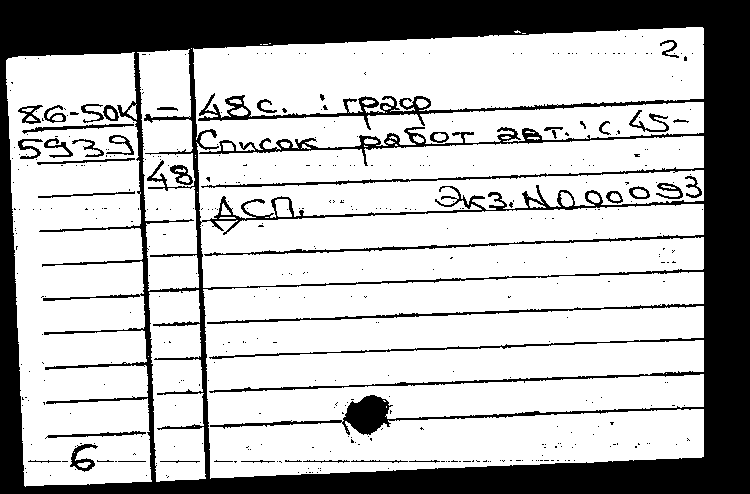 2.
86-50К. – 48 с. : граф
5939 Список работ авт.: с. 45-
48.
ДСП. Экз. N 000093
6